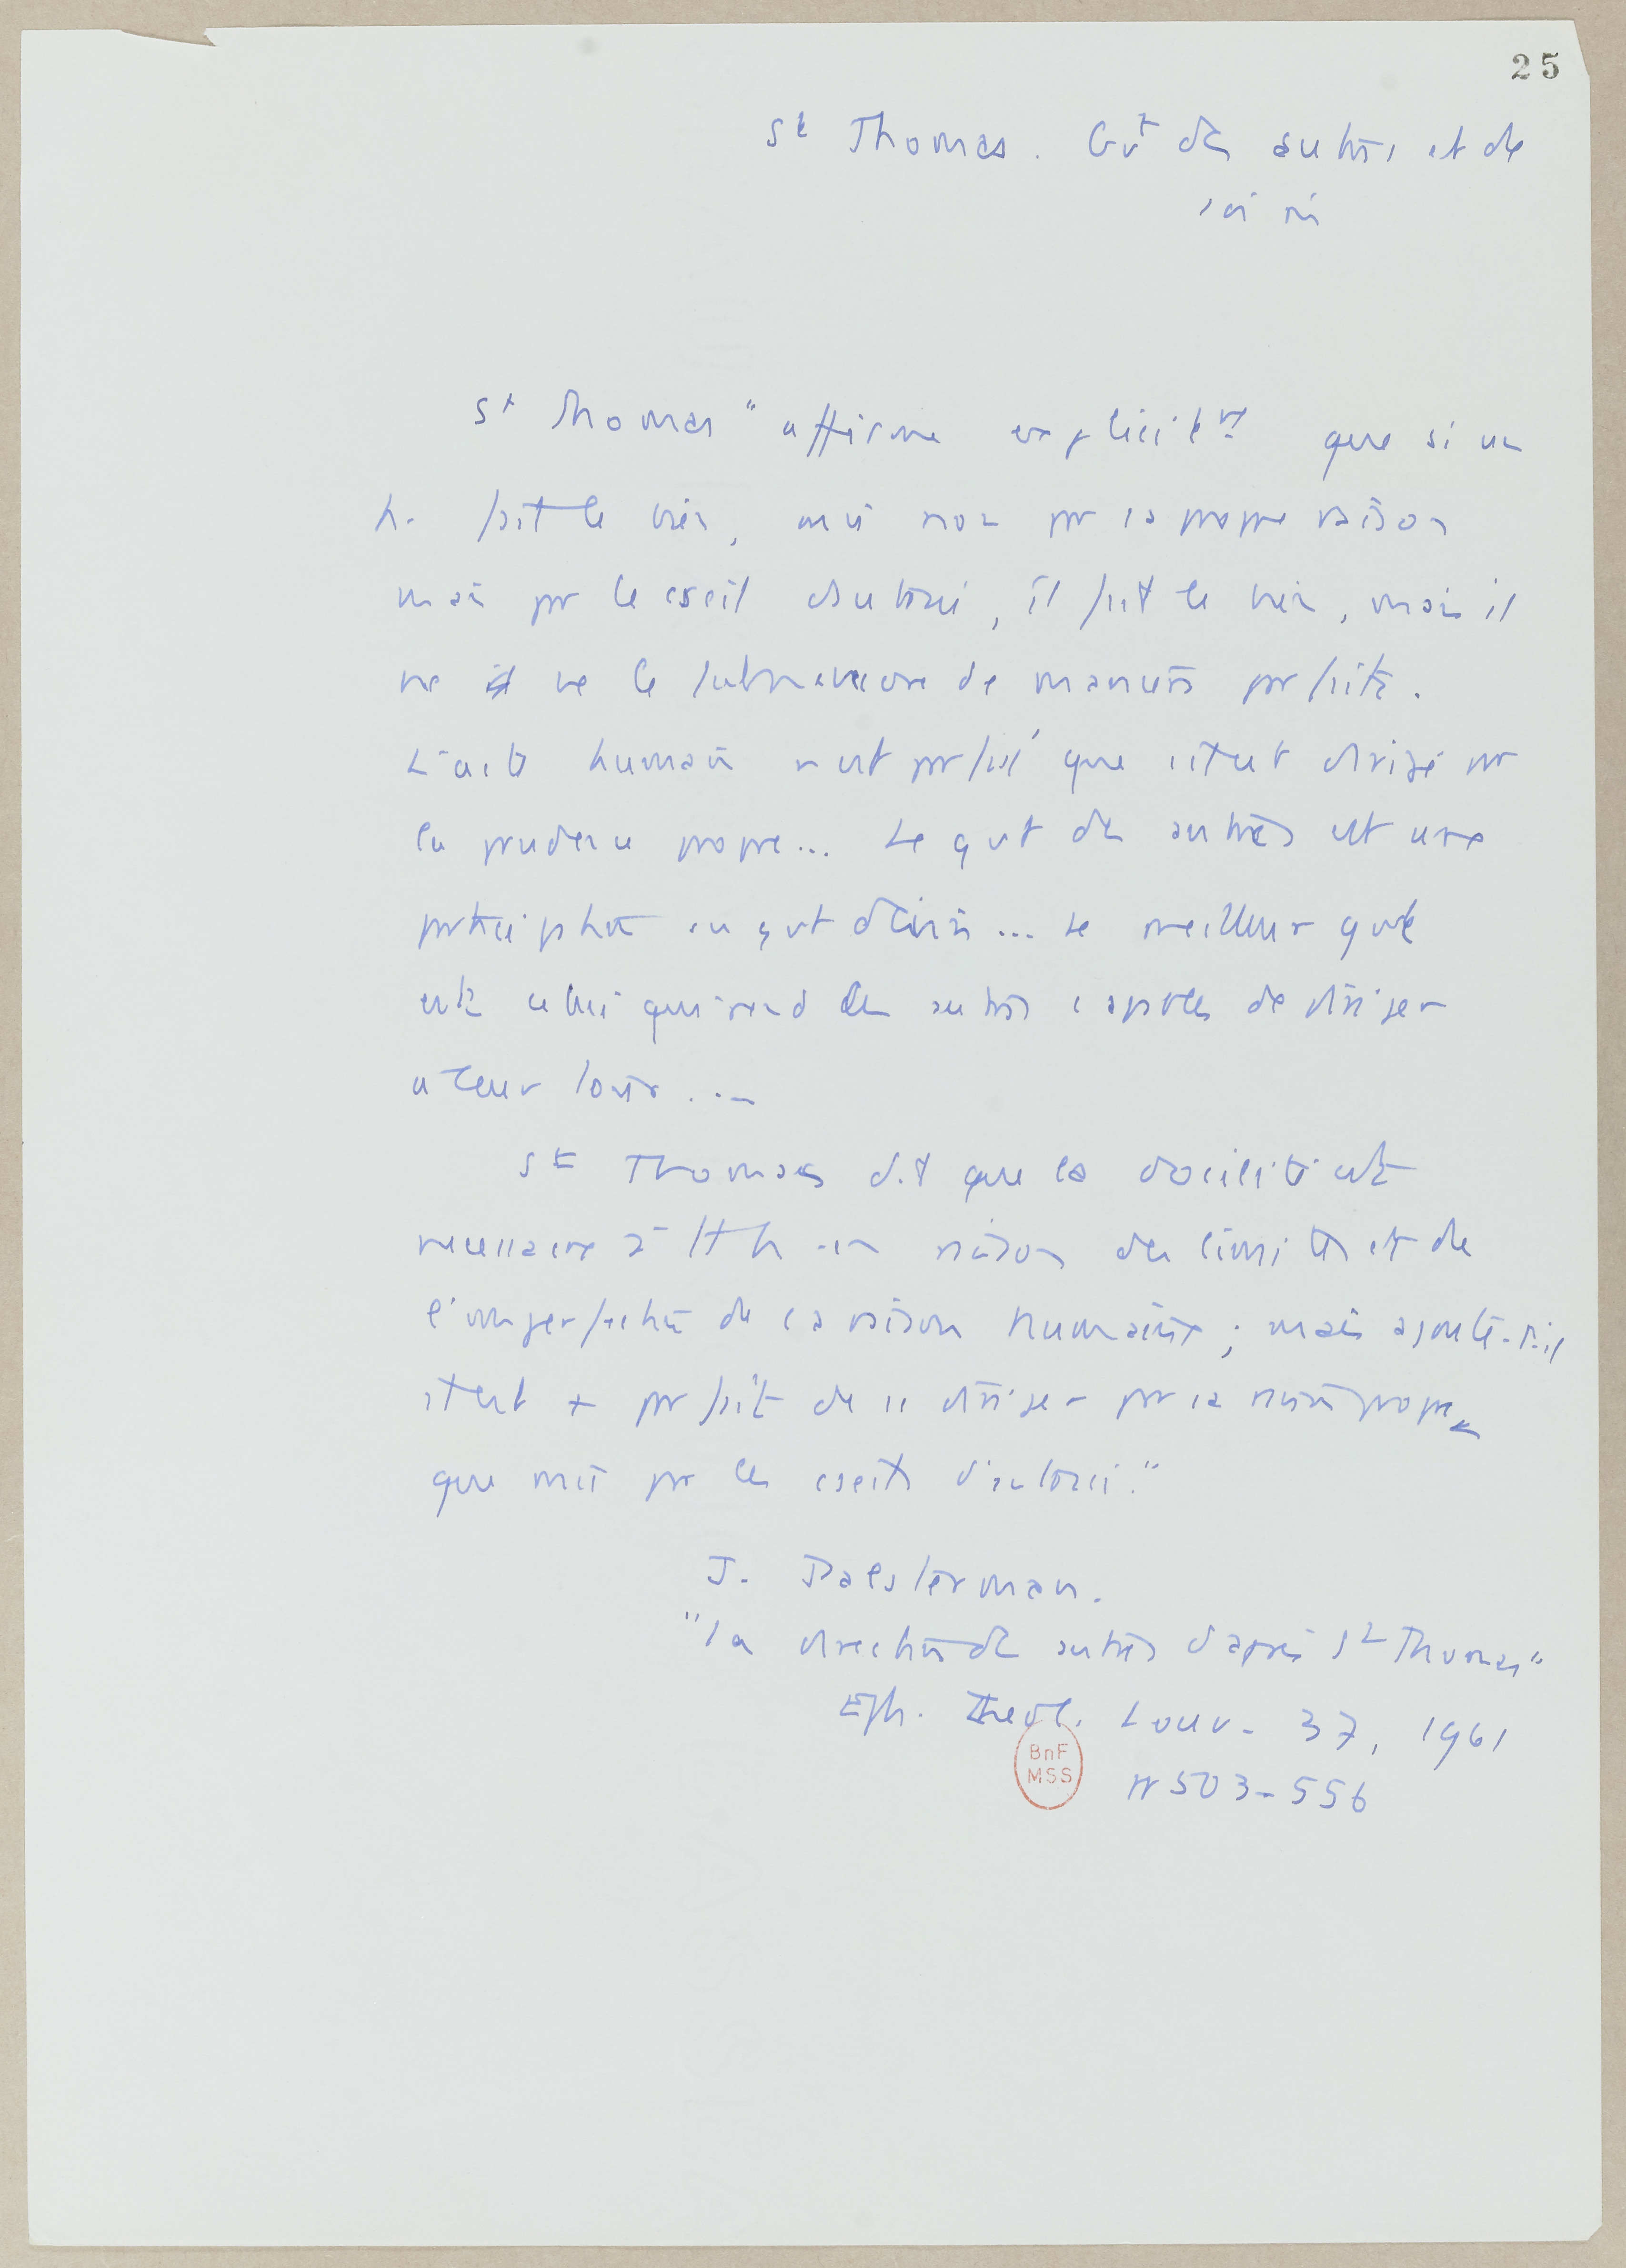 25
St Thomas. Gvt des autres et de
soi m
St Thomas "affirme explicitemt que si un
h. fait le bien, mû non par sa propre raison
mais par le cseil d'autrui, il fait le bien, mais il
ne le de manière parfaite.
L'acte humain n'est parfait que s'il est dirigé par
la prudence propre... Le gvt des autres est une
participation au gvt divin... Le meilleur gvt
est celui qui rend les autres capables de diriger
à leur tour...
St Thomas dit que la docilité est
nécessaire à tt h en raison des limites et de
l'imperfection de la raison humaine ; mais ajoute-t-il
il est + parfait de se diriger par sa raison propre
que mû par les cseils d'autrui."
J. Paesterman.
"La direction des autres d'après St Thomas"
Eph. Theol. Louv. 37, 1961
pp 503-556
BnF
MSS